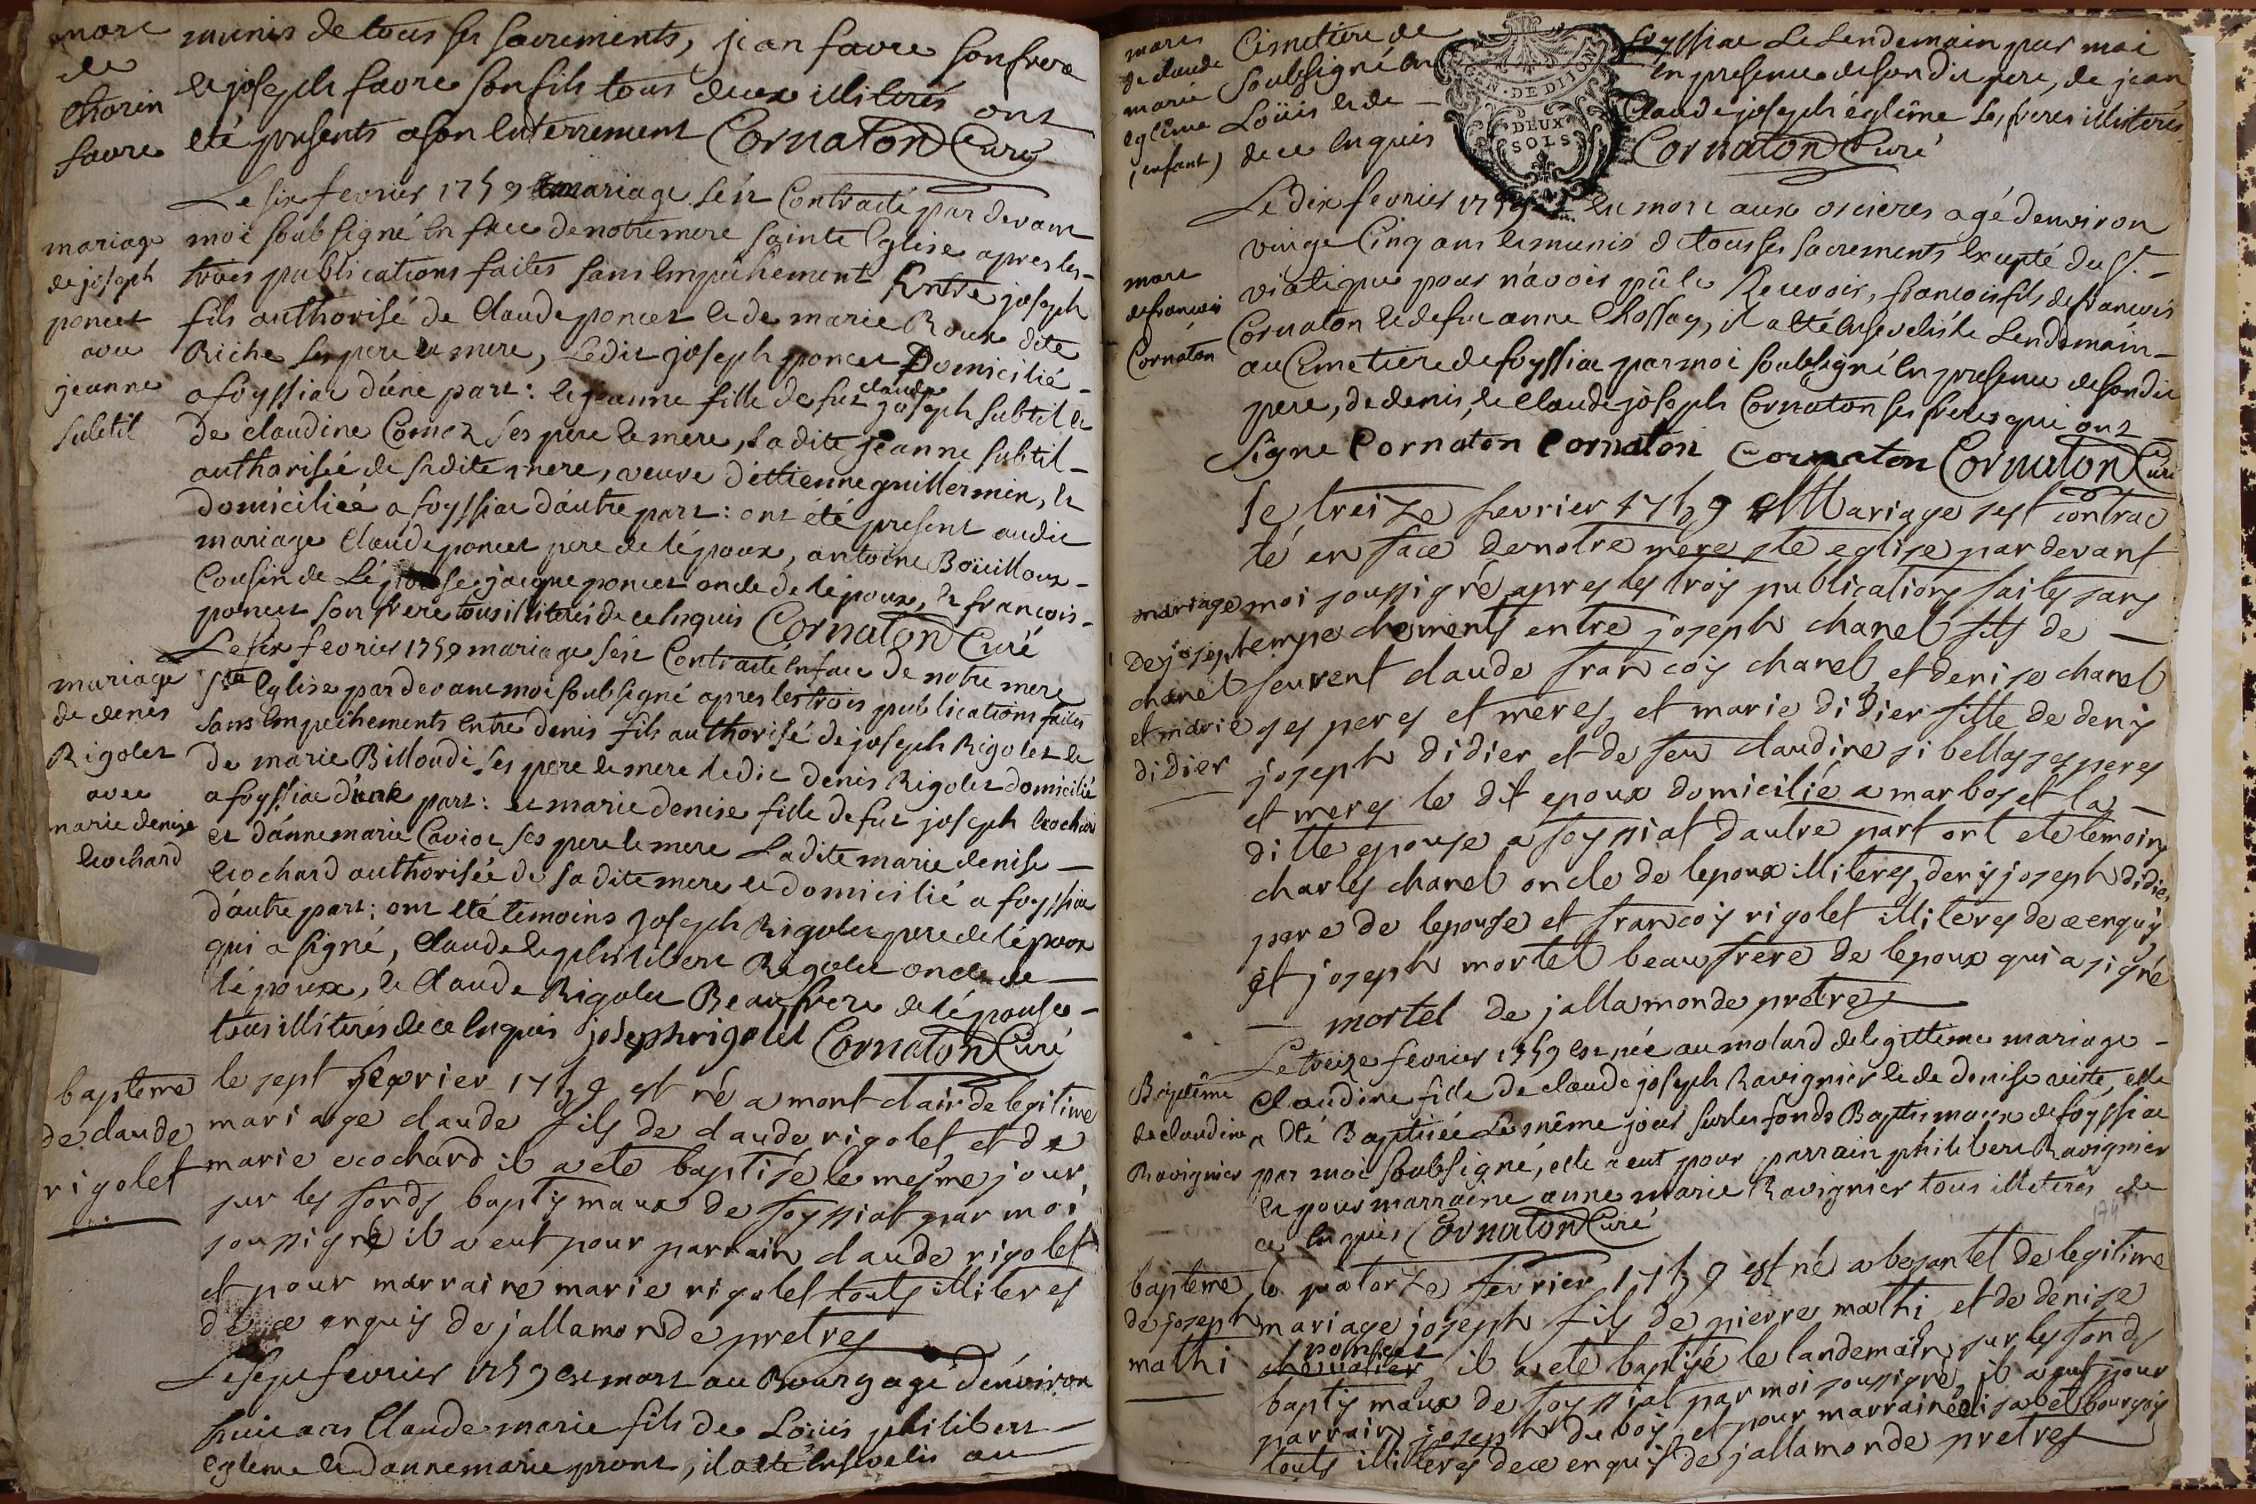 mort
de
Thorin
favre
munis de tous ses sacrements, jean favre son frere
et joseph favre son fils tous deux illiterés ont
eté presents a son enterrement Cornaton Curé
mariage
de joseph
poncet
avec
jeanne
subtil
Le six fevrier 1759 mariage s'est Contracté par devant
moi soubsigné en face de notre mere sainte Eglise apres les
trois publications faites sans empêchement Entre joseph
fils authorisé de Claude poncet et de marie Roux dite
Riche ses pere et mere, Ledit joseph poncet Domicilié
a foyssiac d'une part : et jeanne fille de fut claude joseph subtil et
de claudine Comez ses pere et mere, Ladite jeanne subtil
authorisée de sadite mere, veuve d'ettienne guillermin, et
domiciliée a foyssiac d'autre part : ont été present audit
mariage Claude poncet pere de l'époux, antoine Bouilloux
Cousin de L'épouse jacque poncet oncle de l'époux, et francois
poncet son frere tous illiterés de ce enquis Cornaton Curé
mariage
de denis
Rigolet
avec
marie denise
ecochard
Le six fevrier 1759 mariage s'est Contracté en face de notre mere
ste Eglise par devant moi soubsigné apres les trois publications faites
sans empêchements entre denis fils authorisé de joseph Rigolet et
de marie Billoudi ses pere et mere ledit denis Rigolet domicilié
a foyssiac d'une part : et marie denise fille de fut joseph ecochard
et d'anne marie Caviot ses pere et mere Ladite marie denise
ecochard authorisée de sadite mere et domicilié a foyssiac
d'autre part ; ont eté temoins joseph Rigolet pere de l'époux
qui a signé, Claude et philibert Rigolet oncle de
l'époux, et Claude Rigolet Beaufrere de l'épouse
tous illiterés de ce enquis joseph rigolet Cornaton Curé
bapteme
de claude
rigolet
le sept fevrier 1759 est né a mont clair de legitime
mariage claude fils de claude rigolet et de
marie ecochard il a ete baptise le mesme jour
sur les fonds baptismaux de foyssiat par moi
soussigné il a eut pour parrain claude rigolet
et pour marraine marie rigolet touts illiteres
de ce enquis de jallamonde pretres
Le sept fevrier 1759 est mort au Bourg agé d'environ
huit ans Claude marie fils de Loüis philibert
egleme et d'anne marie pront, il a eté ensevelis au
mort
de claude
marie
egléme
(enfant)
Cimetiere de foyssiac Le Lendemain par moi
Soubsigné en presence de son dit pere, de jean
Loüis et de Claude joseph égléme ses freres illiterés
de ce enquis Cornaton Curé
GEN. DE DIJON
DEUX
SOLS
mort
de francois
Cornaton
Le dix fevrier 1759 est mort aux orcieres agé d'environ
vingt Cinq ans et munis de tous ses sacrements excepté du St.
viatique pour n'avoir pû le Recevoir, francois fils de francois
Cornaton et de fut anne Chossay, il a eté ensevelis le Lendemain
au Cimetiere de foyssiac par moi soubsigné en presence de son dit
pere, de denis, et Claude joseph Cornaton ses freres qui ont
Signe Cornaton Cornaton Cornaton Cornaton Curé
mariage
de joseph
chanel
et marie
didier
le treize fevrier 1759 Mariage sest contrac
té en face de notre mere ste eglise par devant
moi soussigné apres les trois publications faites sans
empechements entre joseph chanel fils de
feurent claude francois chanel et denise chanel
ses peres et meres, et marie didier fille de denis
joseph didier et de feu claudine sibellas ses peres
et meres le dit epoux domicilié a marbos et la
ditte epouse a foyssiat dautre part ont ete temoins
charles chanel oncle de lepoux illiteres, denis joseph didier
pere de lepouse et francois rigolet illiteres de ce enquis
et joseph mortel beaufrere de lepoux qui a signé
mortel de jallamonde pretres
Baptême
de claudine
Ravignier
Le treize fevrier 1759 est née au molard de legitteme mariage
Claudine fille de claude joseph Ravignier et de denise vitte, elle
a eté Baptisée Le même jour sur les fonds Baptismaux de foyssiac
par moi soubsigné, elle a eut pour parrain philibert Ravignier
et pour marraine anne marie Ravignier tous illiterés de
ce enquis Cornaton Curé
bapteme
de joseph
mathi
le quatorze fevrier 1759 est né a besantet de legitime
mariage joseph fils de pierre mathi et de denise
poncet
chevalier, il a ete baptisé le landemain sur les fonds
baptismaux de foyssiat par moi soussigné, il a eut pour
parrain joseph du bois et pour marraine elisabet bourgois
touts illiteres de ce enquis de jallamonde pretres